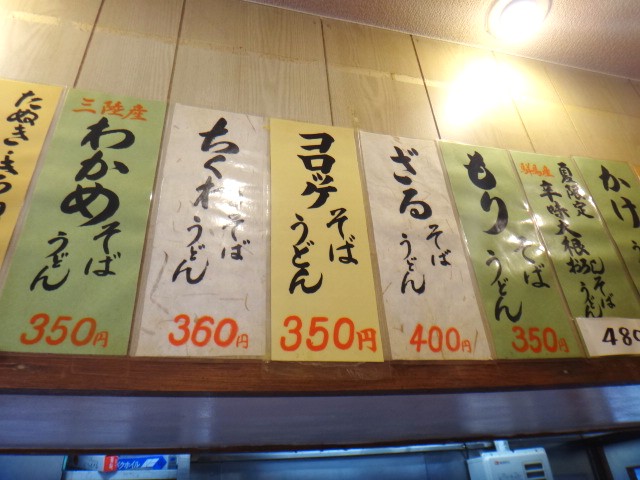 たぬき・きつね
三陸産
わかめそば
うどん
350円
ちくわそば
うどん
360円
コロッケそば
うどん
350円
ざるそば
うどん
400円
もりそば
うどん
350円
夏限定
辛味大根おろしそば
うどん
480
かけ